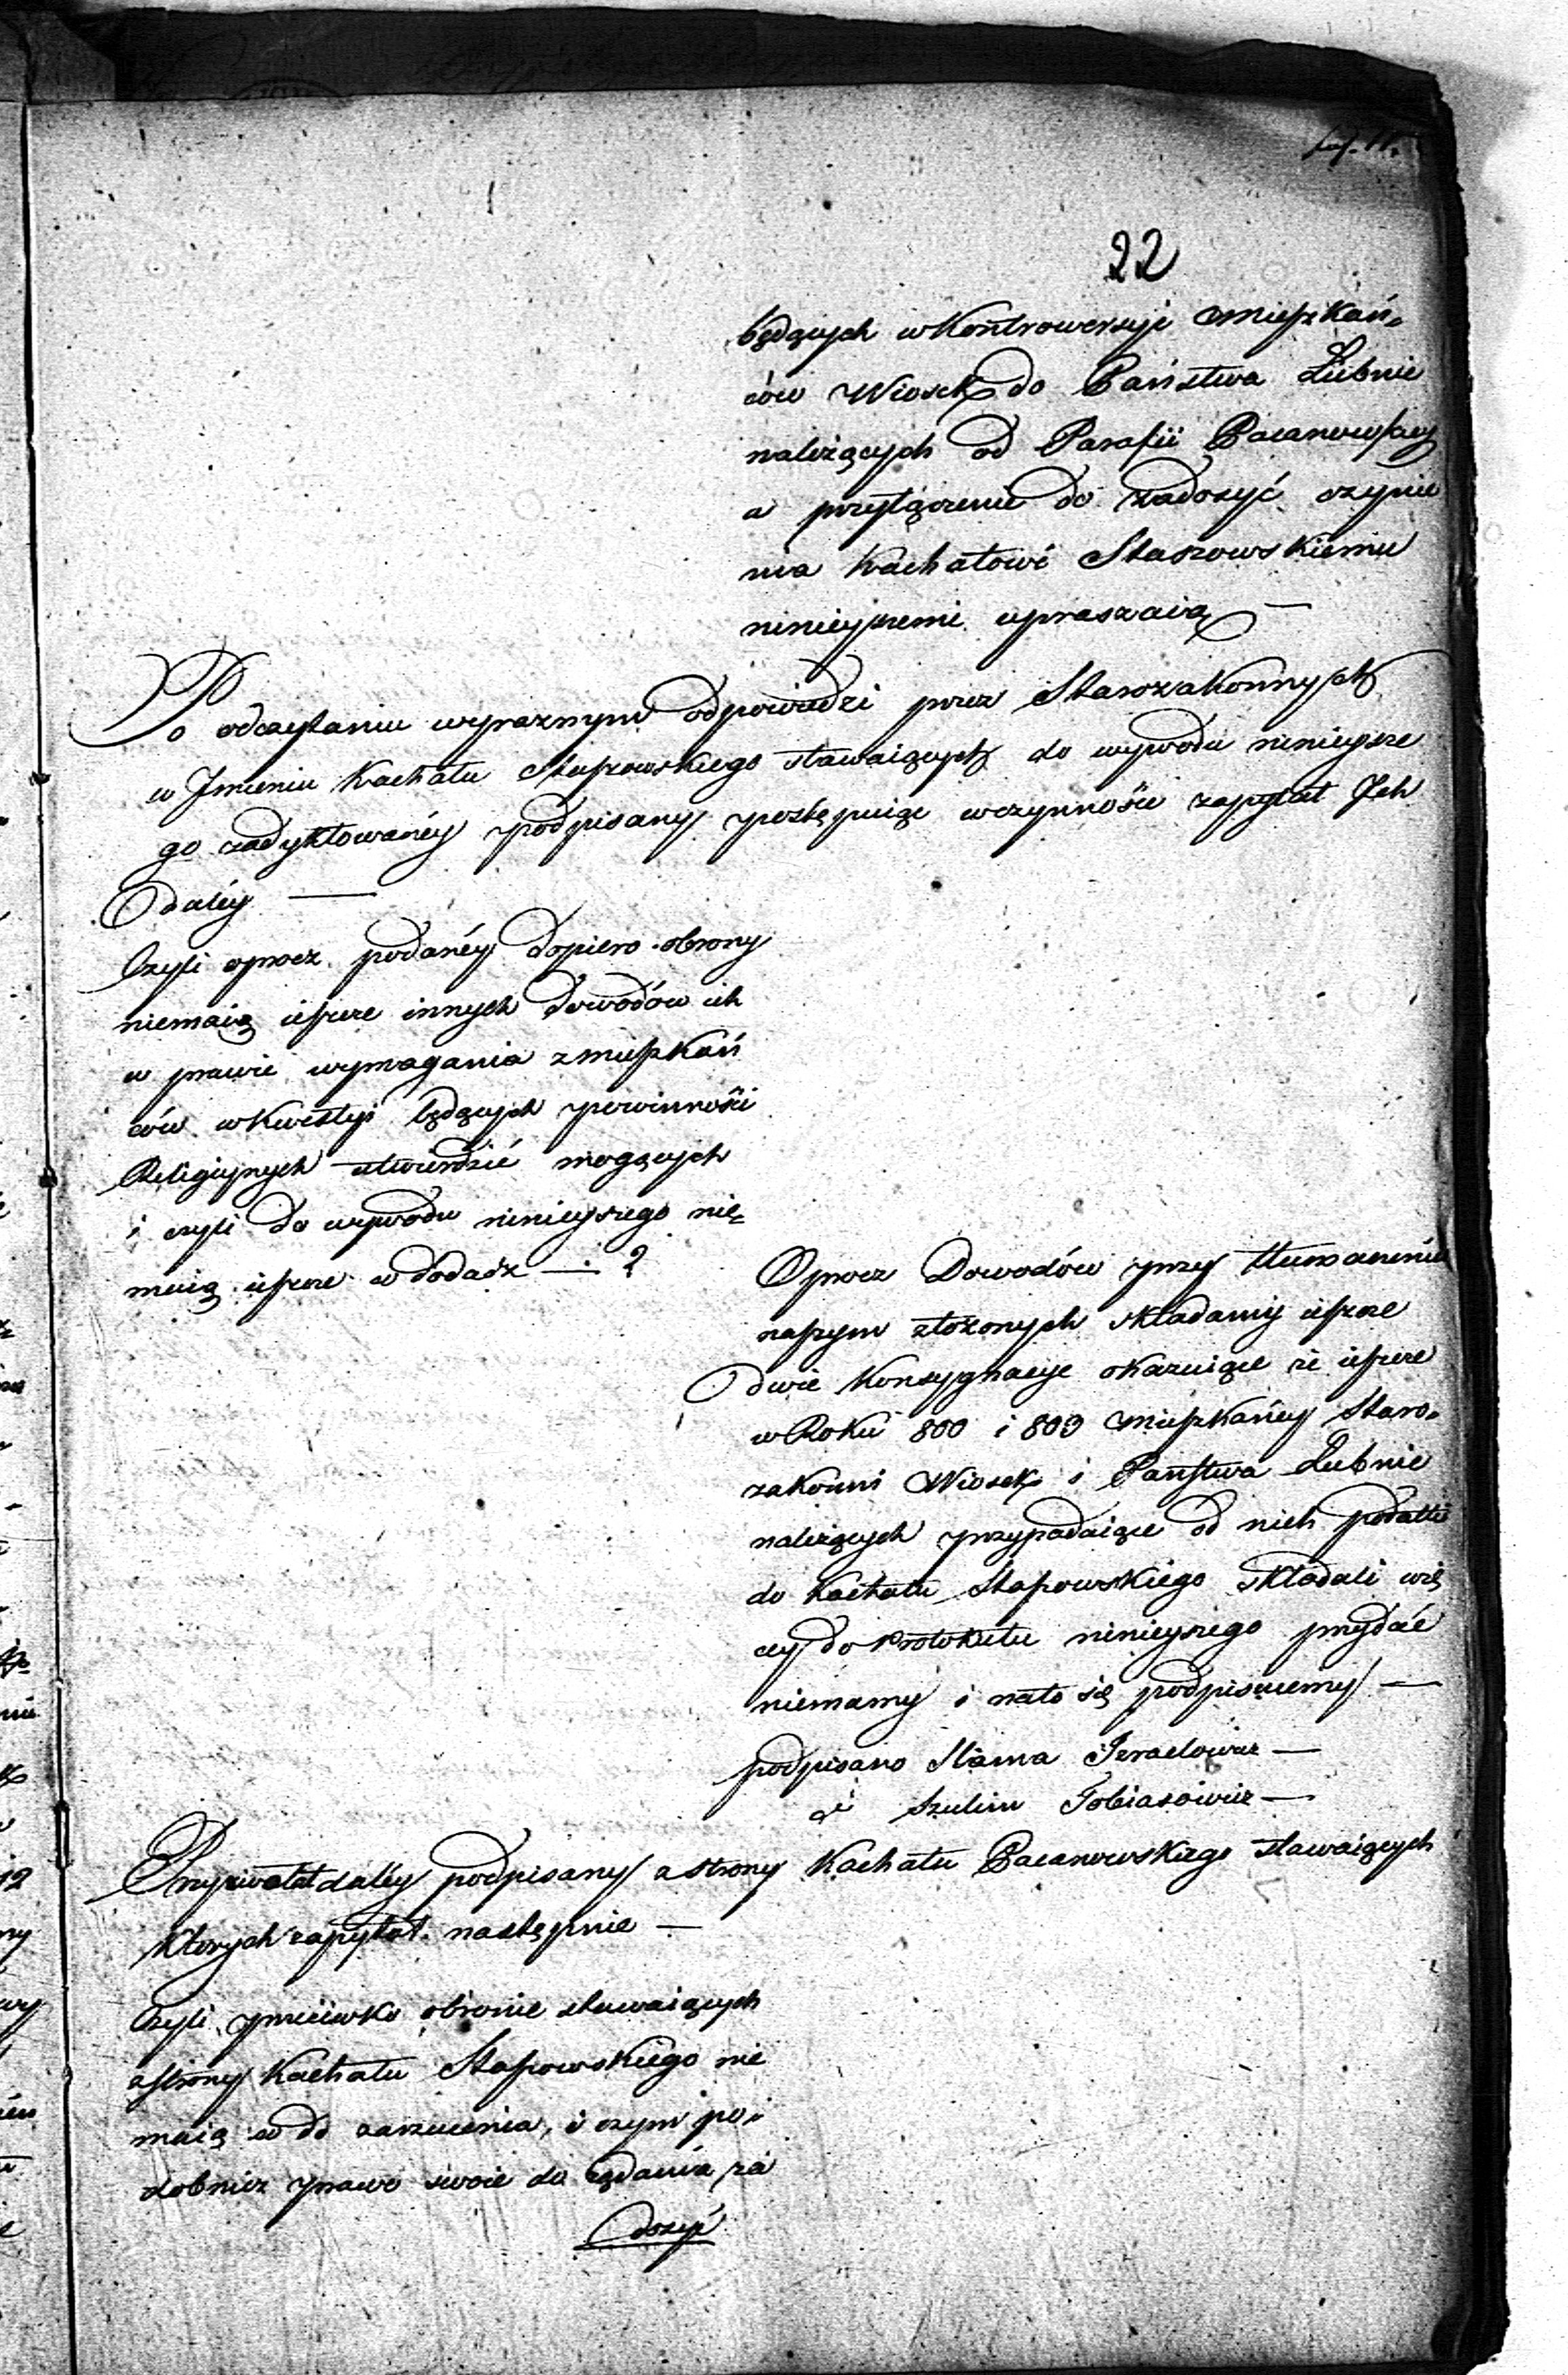 22
będących w Kontrowersyi Mieszkań=
ców Wiosek do Państwa Łubnic
należących od Parafii Pacanowskiey
a przyłączenie do zadosyć czynie
nia Kachałowi Staszowskiemu
ninieyszemi upraszaią —
Po odczytaniu wyraznym odpowiedzi przez Starozakonnych
w Jmieniu Kachału Staszowskiego stawaiących do wywodu ninieysze
go zadyktowaney podpisany postępuiąc w czynności zapytał Jch
daléy —
Czyli oprocz podanéy dopiero obrony
niemaią ieszcze innych dowodów ich
w prawie wymagania z mieszkań
ców w kwestyi będących powinności
Religiynych utwierdzić mogących
i czyli do wywodu ninieyszego nie=
maią ieszcze co dodadź —?
Oprocz Dowodów przy tłumaczeniu
naszym złożonych składamy ieszcze
dwie Konsygnacye okazuiące że ieszcze
w Roku 800 i 803 Mieszkańcy Staro=
zakonni Wiosek i Państwa Łubnic
należących przypadaiące od nich podatki
do Kachału Staszowskiego składali wię
cey do Protokułu ninieyszego przydać
niemamy i na to się podpisuiemy —
podpisano Slama Jzraelowicz —
Szulim Tobiasowicz —
Przyzwał daléy podpisany z strony Kachału Pacanowskiego stawaiących
których zapytał następnie —
Czyli przeciwko obronie stawaiących
z strony Kachału Staszowskiego nie
maią co do zarzucenia, i czym po=
dobnież prawo swoie do żądania za
dosyć